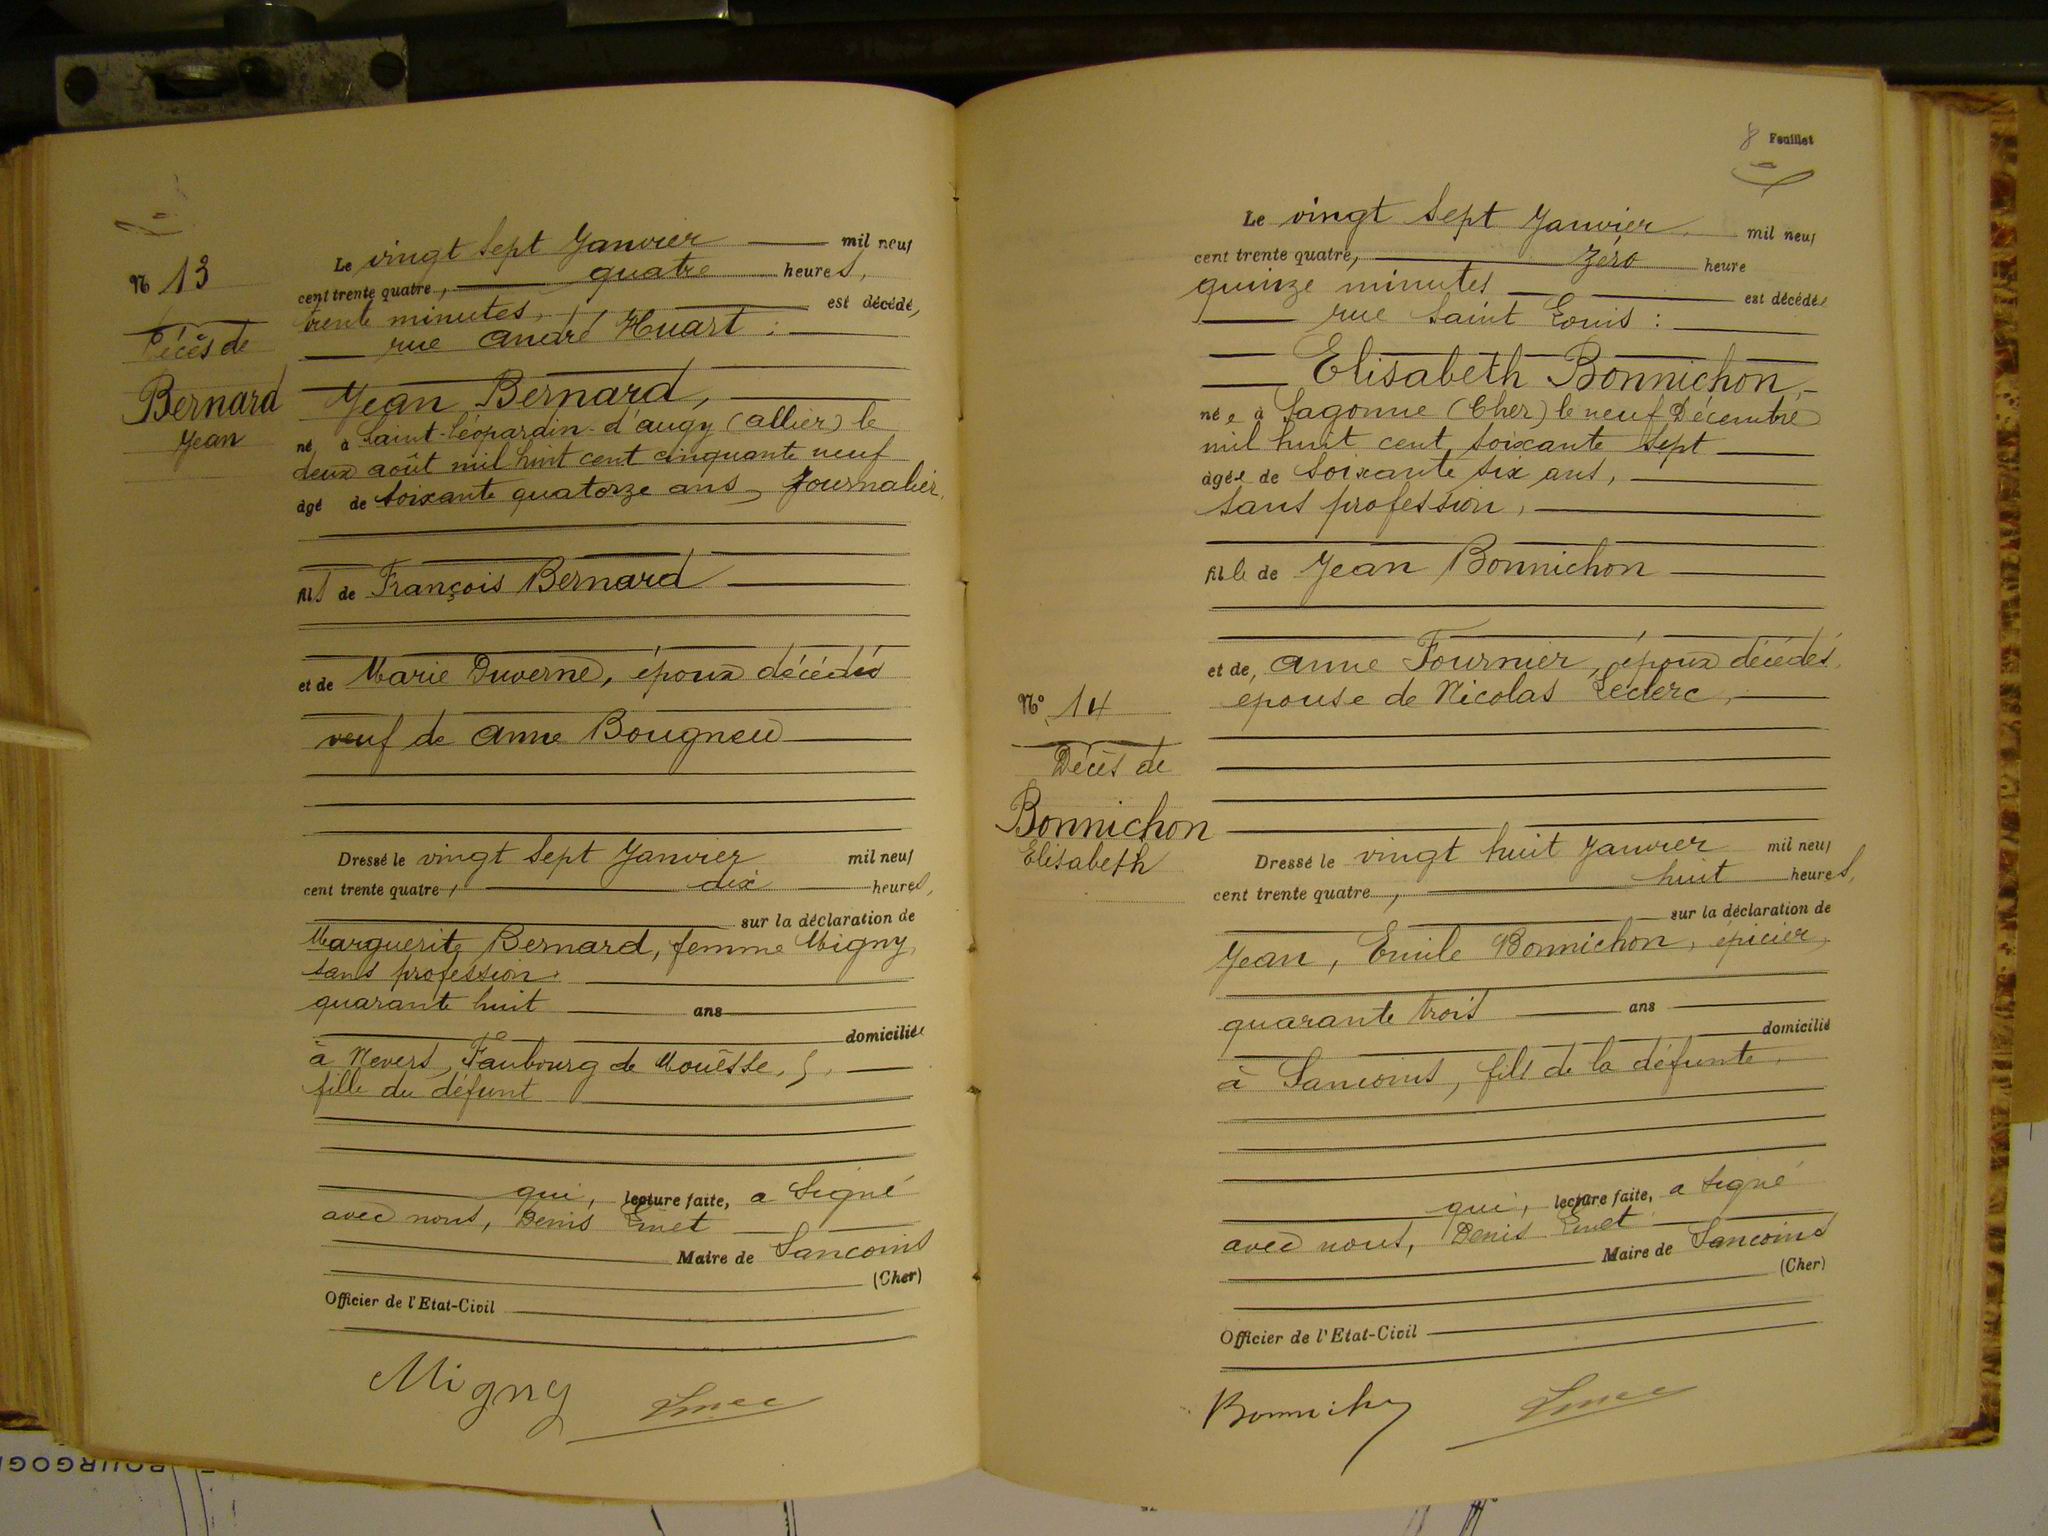 N 13
Décès de
Bernard
Jean
Le vingt sept Janvier mil neuf
cent trente quatre, quatre heures,
trente minutes, est décédé,
rue André Huart :
Jean Bernard,
né à Saint-Léopardin-d'augy (Allier) le
deux août mil huit cent cinquante neuf
âgé de soixante quatorze ans, Journalier,
fils de François Bernard
et de Marie Duverne, époux décédés
veuf de Anne Bougneu
Dressé le vingt sept Janvier mil neuf
cent trente quatre, dix heures,
sur la déclaration de
Marguerite Bernard, femme Migny,
sans profession.
quarante huit ans
domiciliée
à Nevers, Faubourg de Mouësse,
fille du défunt
qui, lecture faite, a signé
avec nous, Denis
Maire de Sancoins
(Cher)
Officier de l'Etat-Civil
Migny
8 Feuillet
N° 14
Décès de
Bonnichon
Elisabeth
Le vingt sept Janvier mil neuf
cent trente quatre, zéro heure
quinze minutes est décédée
rue Saint Louis :
Elisabeth Bonnichon,
née à Sagonne (Cher) le neuf Décembre
mil huit cent soixante sept
âgée de soixante six ans,
sans profession,
fille de Jean Bonnichon
et de, Anne Fournier, époux décédés,
epouse de Nicolas Leclerc,
Dressé le vingt huit Janvier mil neuf
cent trente quatre, huit heures,
sur la déclaration de
Jean, Emile Bonnichon, épicier,
quarante trois ans
domicilié
à Sancoins, fils de la défunte,
qui, lecture faite, a signé
avec nous, Denis
Maire de Sancoins
(Cher)
Officier de l'Etat-Civil